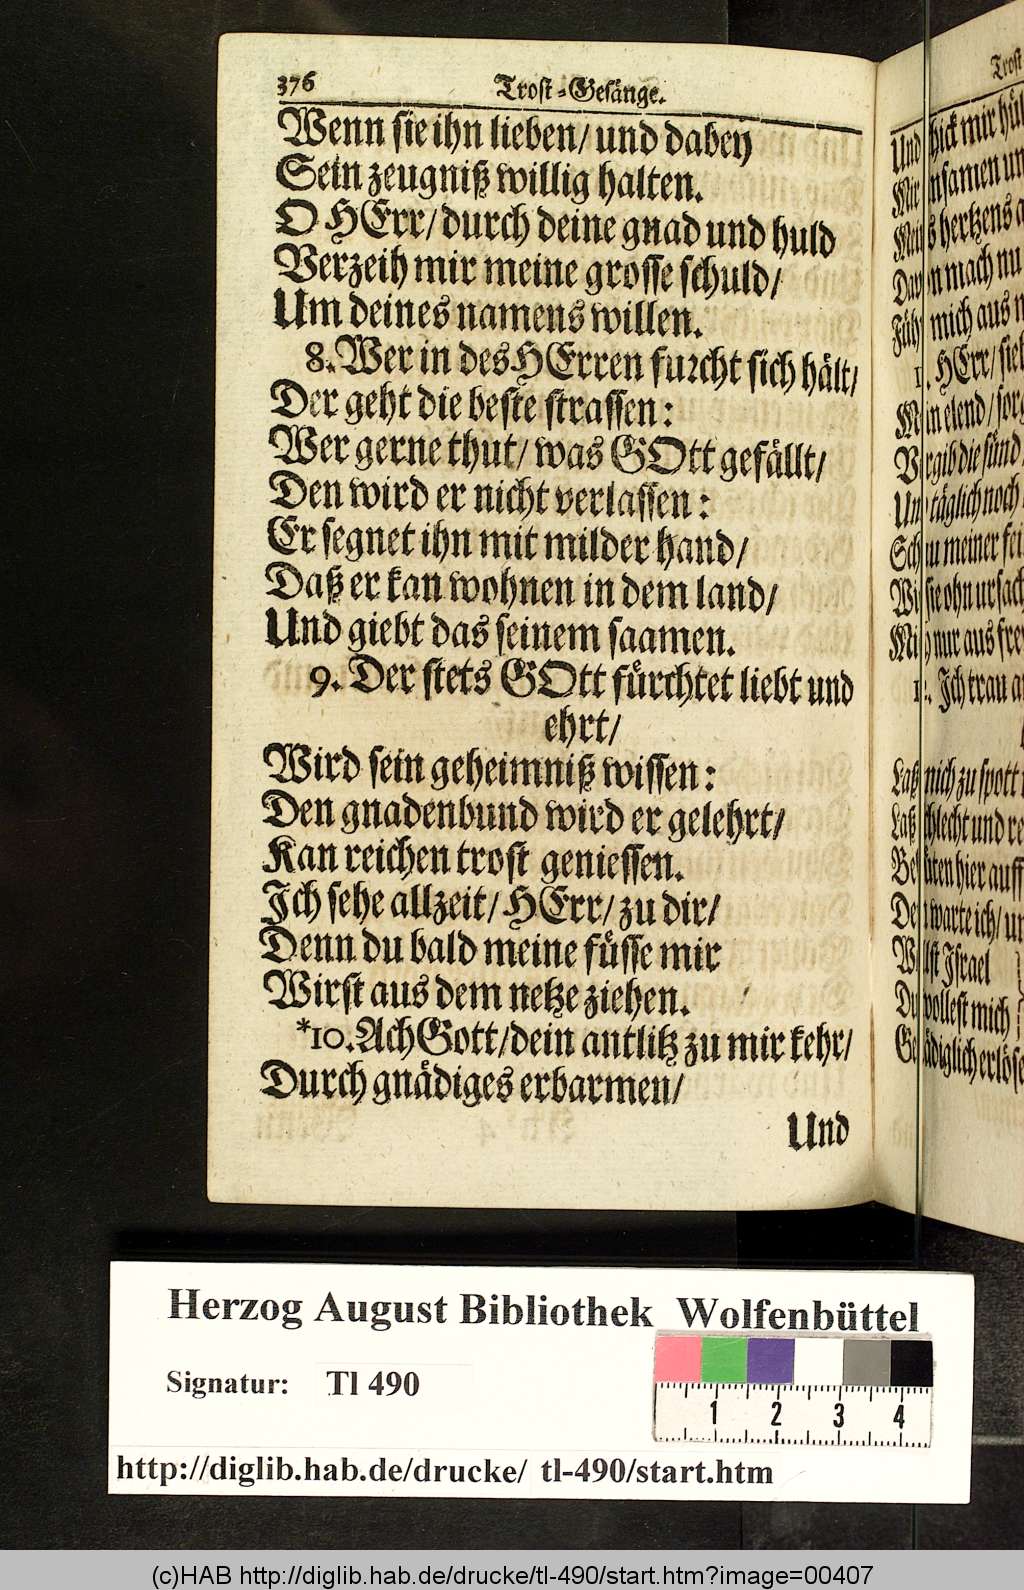 376
Trost-Gesänge.
Wenn sie ihn lieben/ und dabey
Sein zeugniß willig halten.
O HErr/ durch deine gnad und huld
Verzeih mir meine grosse schuld/
Um deines namens willen.
8. Wer in des HErren furcht sich hält/
Der geht die beste strassen:
Wer gerne thut/ was GOtt gefällt/
Den wird er nicht verlassen:
Er segnet ihn mit milder hand/
Daß er kan wohnen in dem land/
Und giebt das seinem saamen.
9. Der stets GOtt fürchtet liebt und
ehrt/
Wird sein geheimniß wissen:
Den gnadenbund wird er gelehrt/
Kan reichen trost geniessen.
Ich sehe allzeit/ HErr/ zu dir/
Denn du bald meine füsse mir
Wirst aus dem netze ziehen.
*10. Ach Gott/ dein antlitz zu mir kehr/
Durch gnädiges erbarmen/
Und
Trost
Und hick mir
nsamen
hertzens
mach nu
mich aus
HErr/
elend/
die sünd
täglich noch
meiner
ohn
nur aus
Ich trau
Laß mich zu spott
Laß schlecht und
hier auff
warte ich/
Israel
wollest mich
Herzog August Bibliothek Wolfenbüttel
Signatur: Tl 490
1 2 3 4
http://diglib.hab.de/drucke/ tl-490/start.htm
(c)HAB http://diglib.hab.de/drucke/tl-490/start.htm?image=00407